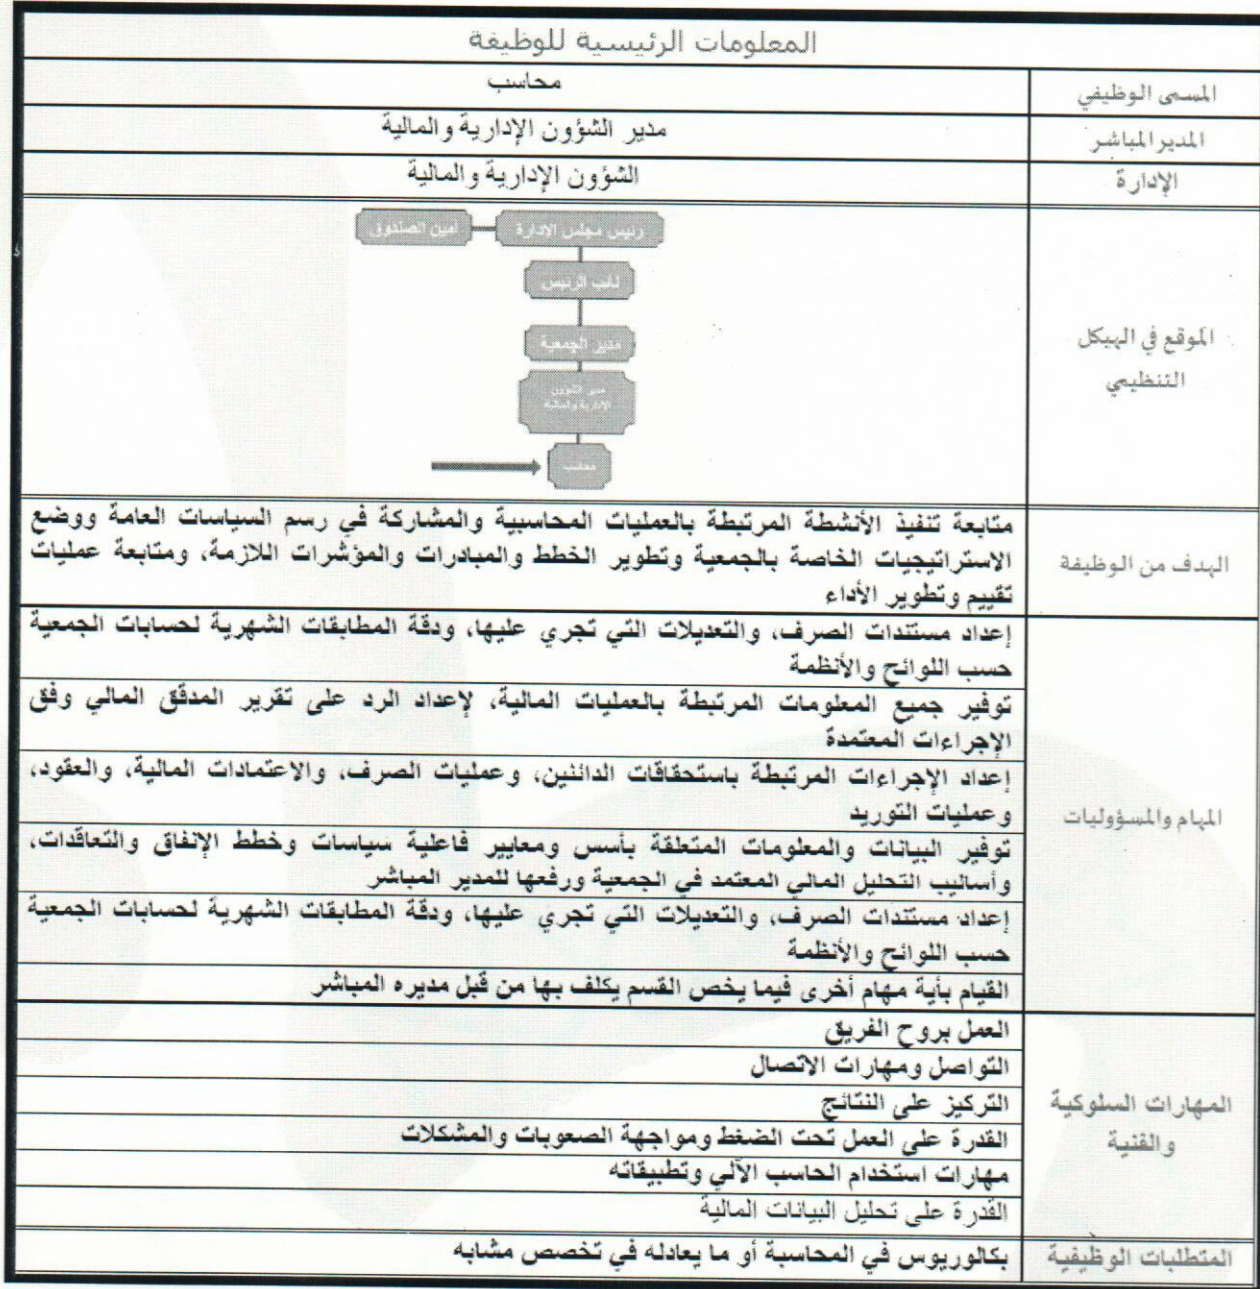 المعلومات الرئيسية للوظيفة
المسمى الوظيفي
محاسب
المدير المباشر
مدير الشؤون الإدارية والمالية
الإدارة
الشؤون الإدارية والمالية
الموقع في الهيكل
التنظيمي
رئيس مجلس الإدارة
أمين الصندوق
نائب الرئيس
مدير الجمعية
مدير الشؤون
الإدارية والمالية
محاسب
الهدف من الوظيفة
متابعة تنفيذ الأنشطة المرتبطة بالعمليات المحاسبية والمشاركة في رسم السياسات العامة ووضع
الاستراتيجيات الخاصة بالجمعية وتطوير الخطط والمبادرات والمؤشرات اللازمة، ومتابعة عمليات
تقييم وتطوير الأداء
المهام والمسؤوليات
إعداد مستندات الصرف، والتعديلات التي تجري عليها، ودقة المطابقات الشهرية لحسابات الجمعية
حسب اللوائح والأنظمة
توفير جميع المعلومات المرتبطة بالعمليات المالية، لإعداد الرد على تقرير المدقق المالي وفق
الإجراءات المعتمدة
إعداد الإجراءات المرتبطة باستحقاقات الدائنين، وعمليات الصرف، والاعتمادات المالية، والعقود،
وعمليات التوريد
توفير البيانات والمعلومات المتعلقة بأسس ومعايير فاعلية سياسات وخطط الإنفاق والتعاقدات،
وأساليب التحليل المالي المعتمد في الجمعية ورفعها للمدير المباشر
إعداد مستندات الصرف، والتعديلات التي تجري عليها، ودقة المطابقات الشهرية لحسابات الجمعية
حسب اللوائح والأنظمة
القيام بأية مهام أخرى فيما يخص القسم يكلف بها من قبل مديره المباشر
المهارات السلوكية
والفنية
العمل بروح الفريق
التواصل ومهارات الاتصال
التركيز على النتائج
القدرة على العمل تحت الضغط ومواجهة الصعوبات والمشكلات
مهارات استخدام الحاسب الآلي وتطبيقاته
القدرة على تحليل البيانات المالية
المتطلبات الوظيفية
بكالوريوس في المحاسبة أو ما يعادله في تخصص مشابه